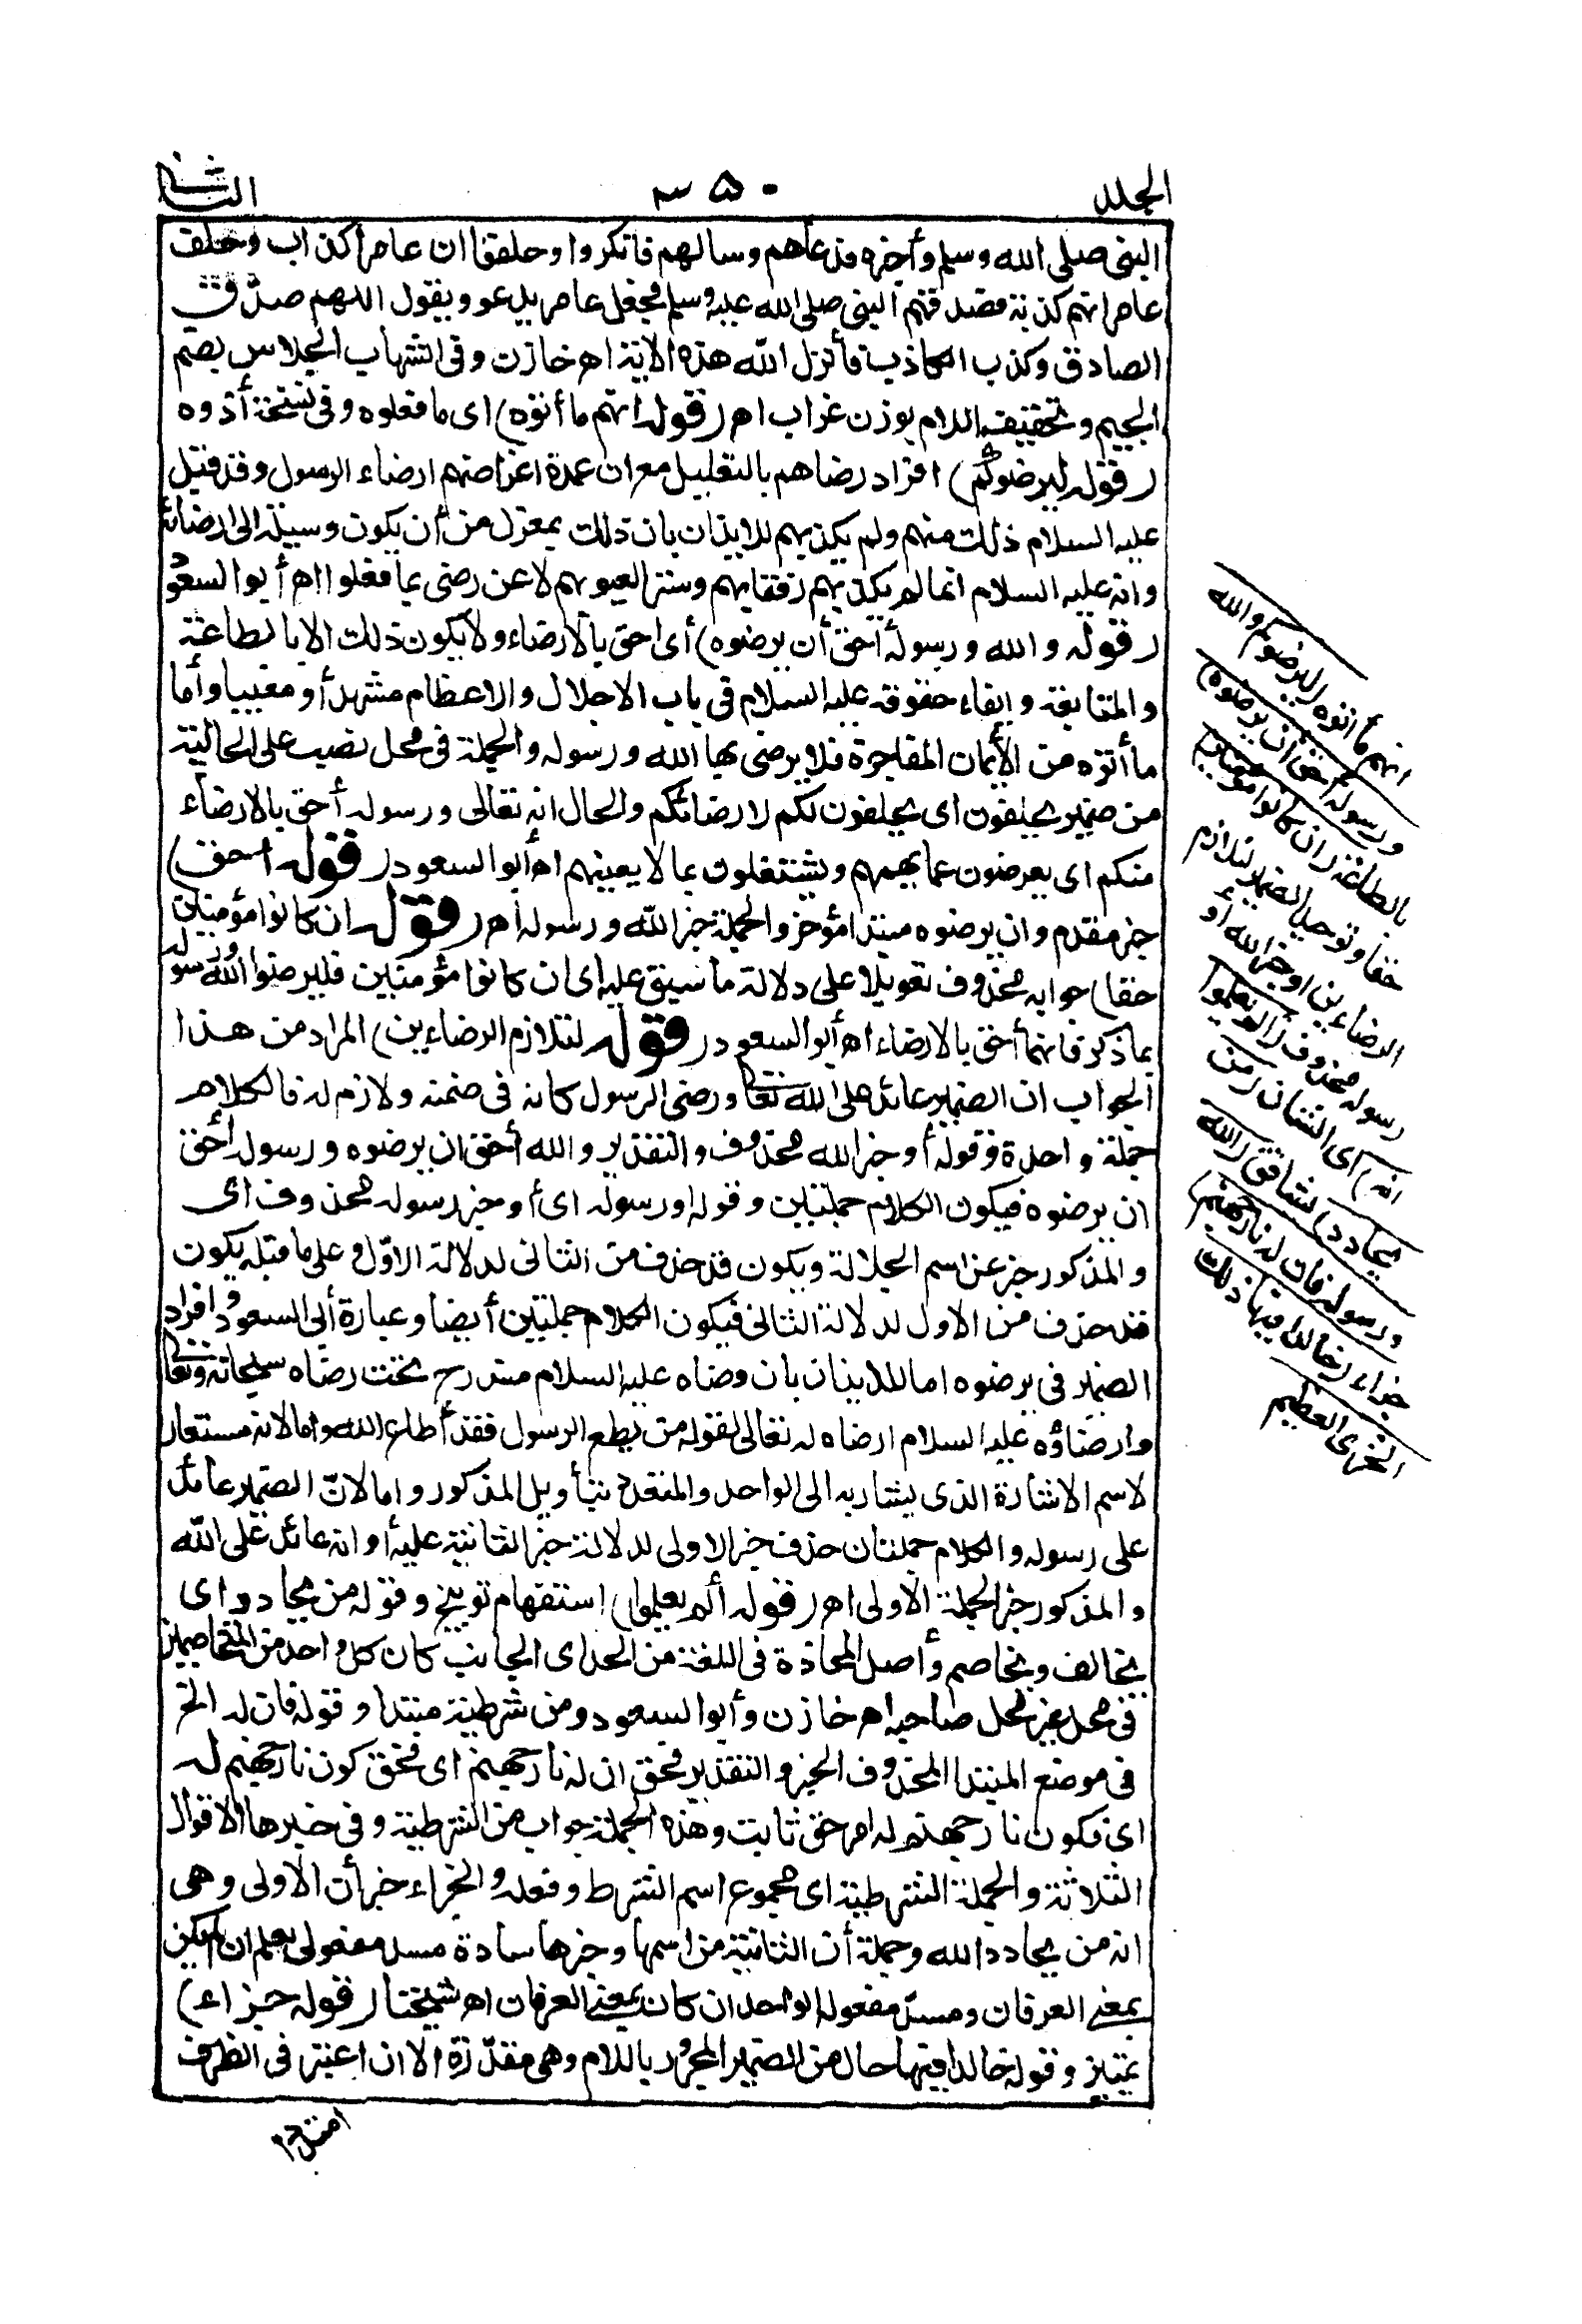 المجلد
٣٥٠
الثانى
النبى صلى الله وسلم وأخبره فدعاهم وسالهم فانكروا وحلفوا ان عامرا كذاب وحلف
عامر انهم كذبة فصدقهم النبى صلى الله عليه وسلم فجعل عامر يدعو ويقول اللهم صدّق
الصادق وكذب الكاذب فأنزل الله هذه الاية اه خازن وفى الشهاب الجلاس بضم
الجيم وتخفيف اللام بوزن غراب اه (قوله انهم ما أتوه) اى ما فعلوه وفى نسخة أذوه
(قوله ليرضوكم) افراد رضاهم بالتعليل مع ان عمدة اغراضهم ارضاء الرسول وقد قبل
عليه السلام ذلك منهم ولم يكذبهم للايذان بان ذلك بمعزل من أن يكون وسيلة الى ارضائه
وانه عليه السلام انما لم يكذبهم رفقا بهم وسترا لعيوبهم لا عن رضى بما فعلوا اه أبو السعود
(قوله والله ورسوله أحق أن يرضوه) أى احق بالارضاء ولا يكون ذلك الا بالطاعة
والمتابعة وايفاء حقوقه عليه السلام فى باب الاجلال والاعظام مشهدا ومغيبا وأما
ما أتوه من الأيمان الفاجرة فلا يرضى بها الله ورسوله والجملة فى محل نصب على الحالية
من ضمير يحلفون اى يحلفون لكم لارضائكم والحال انه تعالى ورسوله أحق بالارضاء
منكم اى يعرضون عما يهمهم ويشتغلون بما لا يعنيهم اه أبو السعود (قوله احق)
خبر مقدم وان يرضوه مبتدا مؤخر والجملة خبر الله ورسوله اه (قوله ان كانوا مؤمنين
حقا) جوابه محذوف تعويلا على دلالة ما سبق عليه اى ان كانوا مؤمنين فليرضوا الله ورسوله
بما ذكر فانهما أحق بالارضاء اه أبو السعود (قوله لتلازم الرضاءين) المراد من هذا
الجواب ان الضمير عائد على الله تعالى ورضى الرسول كانه فى ضمنه ولازم له فالكلام
جملة واحدة وقوله أو خبر الله محذوف والتقدير والله أحق ان يرضوه ورسوله أحق
ان يرضوه فيكون الكلام جملتين وقوله او رسوله اى أو خبر رسوله محذوف اى
والمذكور خبر عن اسم الجلالة ويكون قد حذف من الثانى لدلالة الاوّل وعلى ما قبله يكون
قد حذف من الاول لدلالة الثانى فيكون الكلام جملتين أيضا وعبارة أبى السعود وافراد
الضمير فى يرضوه اما للايذان بان رضاه عليه السلام مندرج تحت رضاه سبحانه وتعالى
وارضاؤه عليه السلام ارضاه له تعالى لقوله من يطع الرسول فقد أطاع الله واما لانه مستعار
لاسم الاشارة الذى يشار به الى الواحد والمتعدد بتأويل المذكور واما لانّ الضمير عائد
على رسوله والكلام جملتان حذف خبر الاولى لدلالة خبر الثانية عليه أو انه عائد على الله
والمذكور خبر الجملة الأولى اه (قوله ألم يعلموا) استفهام توبيخ وقوله من يحادد اى
يخالف ويخاصم وأصل المحادة فى اللغة من الحد اى الجانب كان كل واحد من المتخاصمين
فى محل غير محل صاحبه اه خازن وأبو السعود ومن شرطية مبتدا وقوله فان له الخ
فى موضع المبتدا المحذوف الخبر والتقدير فحق ان له نار جهنم اى فحق كون نار جهنم له
اى فكون نار جهنم له امر حق ثابت وهذه الجملة جواب من الشرطية وفى خبرها الاقوال
الثلاثة والجملة الشرطية اى مجموع اسم الشرط وفعله والجزاء خبر أن الاولى وهى
انه من يحادد الله وجملة أن الثانية من اسمها وخبرها سادة مسد مفعولى يعلم ان لم يكن
بمعنى العرفان ومسد مفعوله الواحد ان كان بمعنى العرفان اه شيخنا (قوله جزاء)
تمييز وقوله خالدا فيها حال من الضمير المجرور باللام وهى مقدّرة الا ان اعتبر فى الظرف
انهم ما أتوه (ليرضوكم والله
ورسوله أحق أن يرضوه)
بالطاعة (ان كانوا مؤمنين)
حقا وتوحيد الضمير لتلازم
الرضاءين او خبر الله أو
رسوله محذوف (ألم يعلموا
انه) اى الشان (من
يحادد) يشاقق (الله
ورسوله فان له نار جهنم)
جزاء (خالدا فيها ذلك
الخزى العظيم